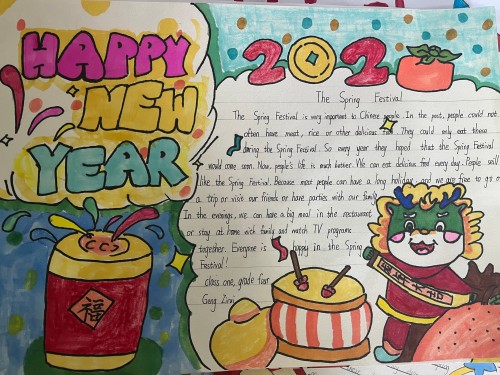 HAPPY
NEW
YEAR
202
The Spring Festival
The Spring Festival is very important to Chinese people. In the past, people could not
often have meat, rice or other delicious food. They could only eat these
during the Spring Festival. So every year they hoped that the Spring Festival
would come soon. Now, people's life is much better. We can eat delicious food every day. People still
like the Spring Festival. Because most people can have a long holiday, and we are free to go on
a trip or visit our friends or have parties with our family.
In the evenings, we can have a big meal in the restaurant
or stay at home with family and watch TV programs
together. Everyone is happy in the Spring
Festival!
class one, grade four
Geng
福